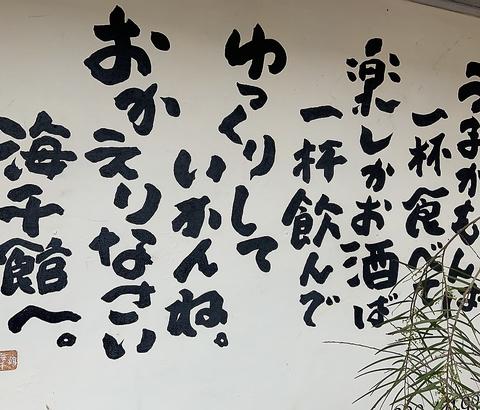 うまかもんば
一杯食べて
楽しかお酒ば
一杯飲んで
ゆっくりして
いかんね。
おかえりなさい
海千館へ。